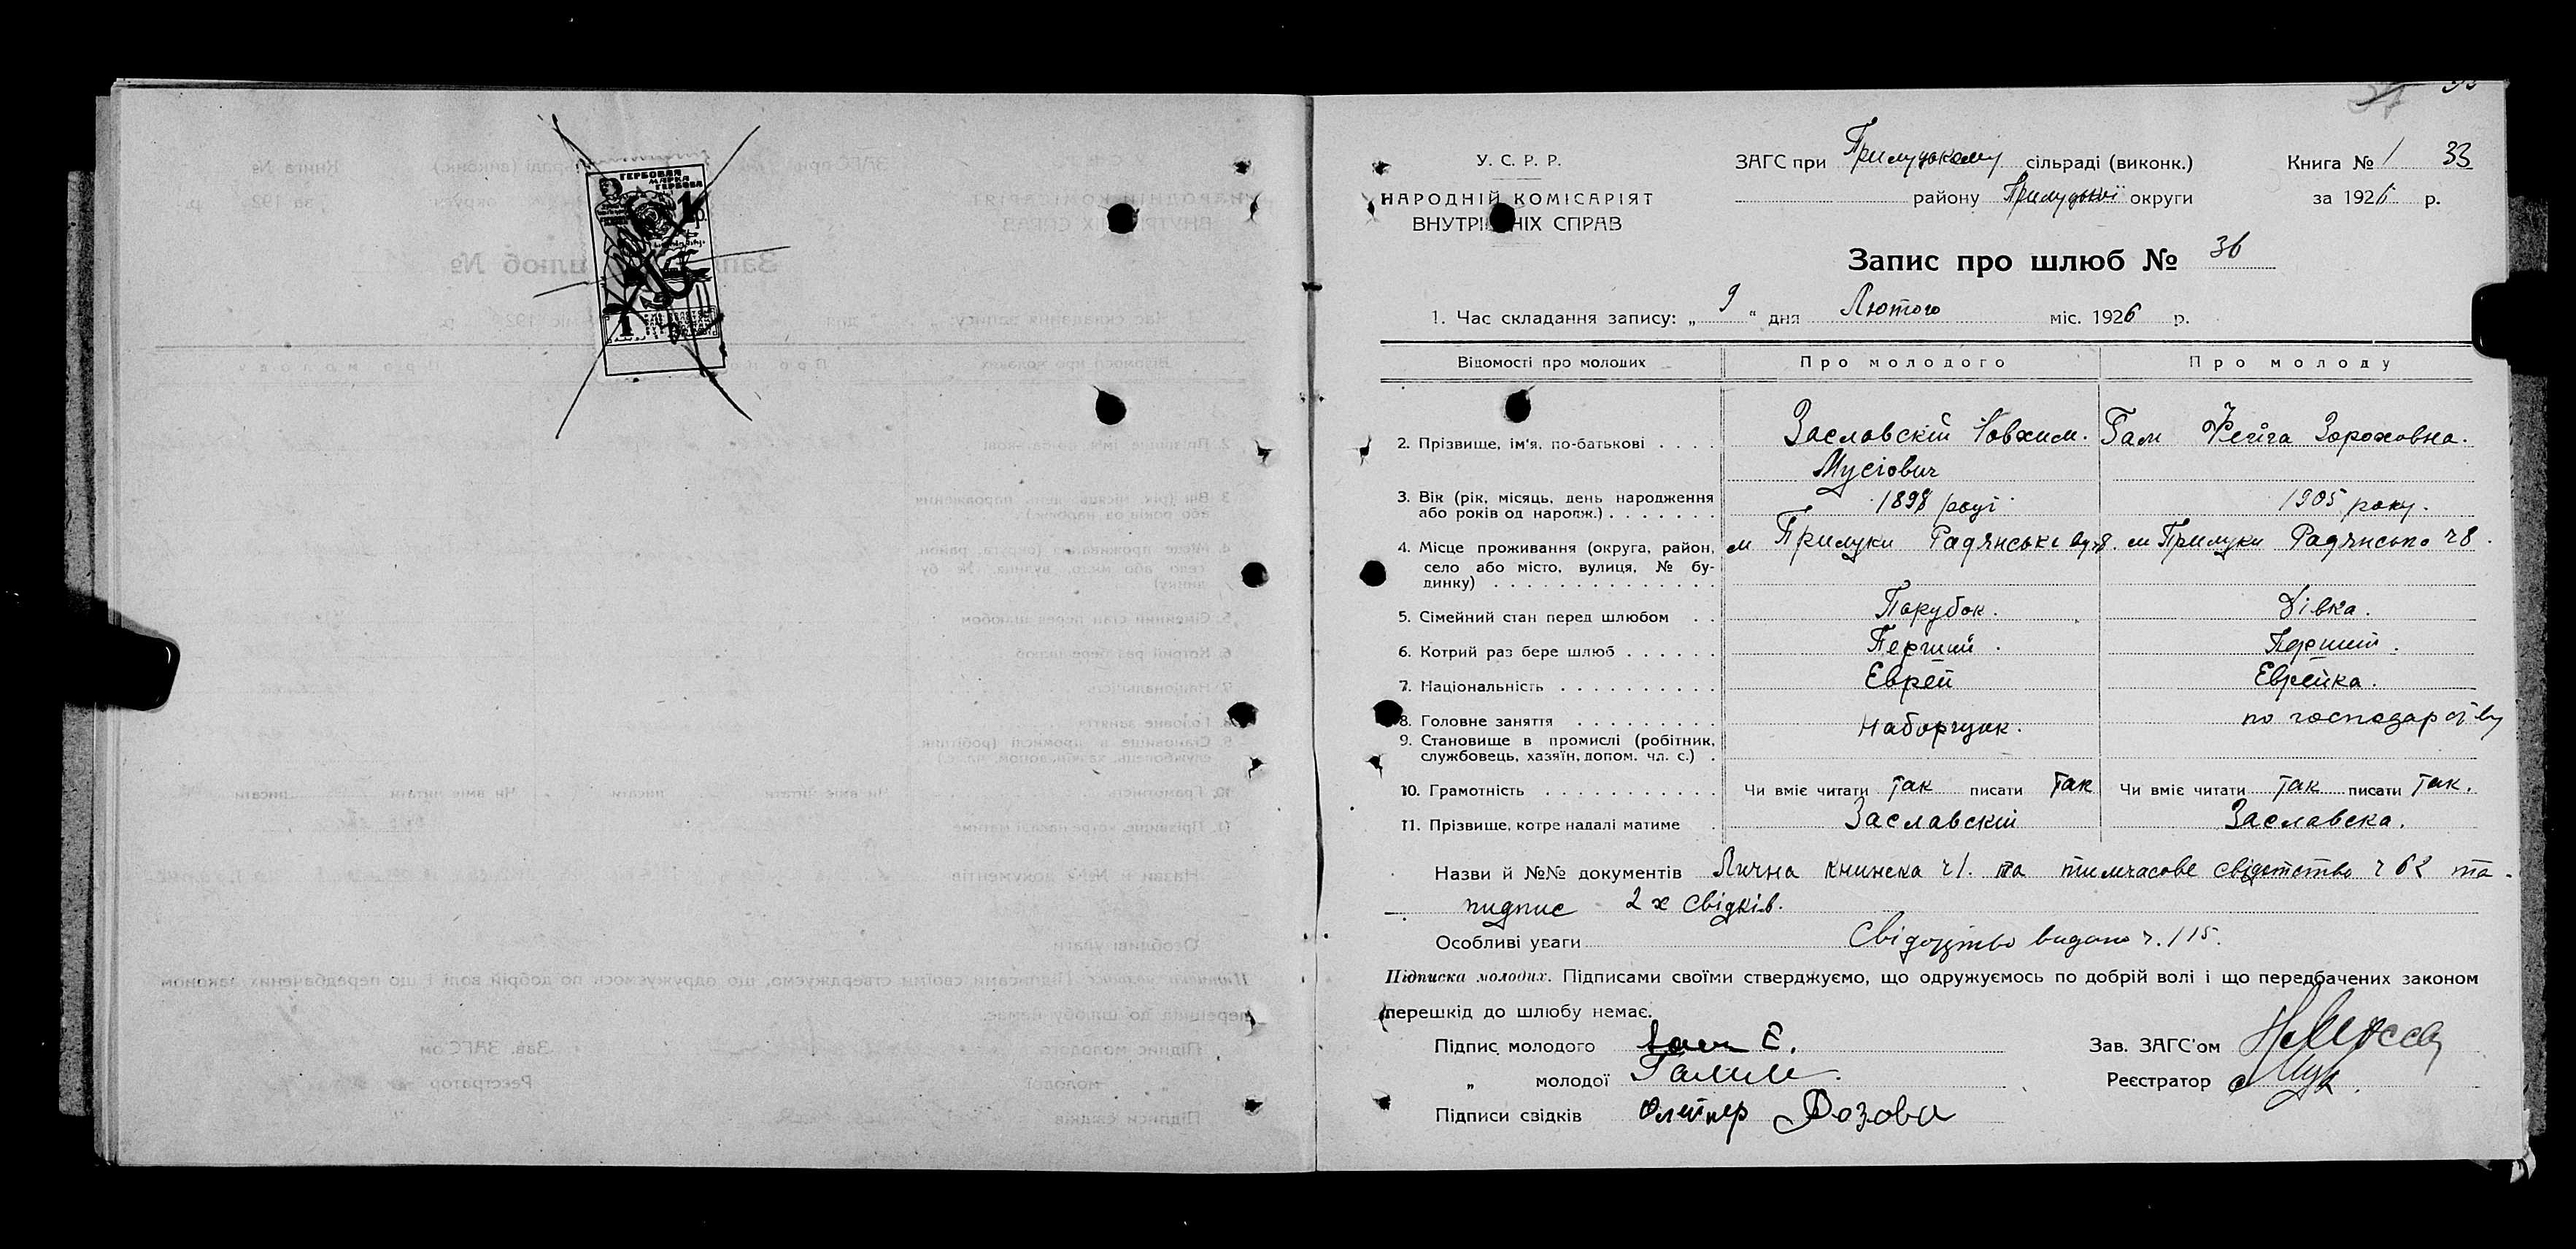 ГЕРБОВАЯ
МАРКА
ГЕРБОВА
1 р.
1
33
У. С. Р. Р.
НАРОДНІЙ КОМІСАРІЯТ
ВНУТРІШНІХ СПРАВ
ЗАГС при Прилуцькому сільраді (виконк.)
району Прилуцької округи
Книга № 1 33
за 1926 р.
Запис про шлюб № 36
1. Час складання запису: „ 9 " дня Лютого міс. 1926 р.
Відомості про молодих Про молодого Про молоду
2. Прізвище, ім'я, по-батькові . . . . Заславскій Йовхим. Гам Фейга Зороховна.
Мусієвич
3. Вік (рік, місяць, день народження або років од народж.) . . . . . . . 1898 році 1905 року.
4. Місце проживання (округа, район, село або місто, вулиця, № будинку) . . . . . . . . . . . . . . м Прилуки Радянська вул 8. м Прилуки Радянська ч 8.
5. Сімейний стан перед шлюбом . . Парубок. Дівка.
6. Котрий раз бере шлюб . . . . . . Перший. Перший.
7. Національність . . . . . . . . . . Еврей Еврейка.
8. Головне заняття . . . . . . . . . Наборщик. по господарству
9. Становище в промислі (робітник, службовець, хазяїн, допом. чл. с.) .
10. Грамотність . . . . . . . . . . . Чи вміє читати так писати так Чи вміє читати так писати так.
11. Прізвище, котре надалі матиме . Заславскій Заславска.
Назви й №№ документів Лична книжка ч 1. та тимчасове свідетство ч 62 та
пидпис 2х свідків.
Особливі уваги Свідоцтво видано ч. 115.
Підписка молодих. Підписами своїми стверджуємо, що одружуємось по добрій волі і що передбачених законом
перешкід до шлюбу немає.
Підпис молодого Зав. ЗАГС'ом
„ молодої Реєстратор
Підписи свідків Олейнер Розова